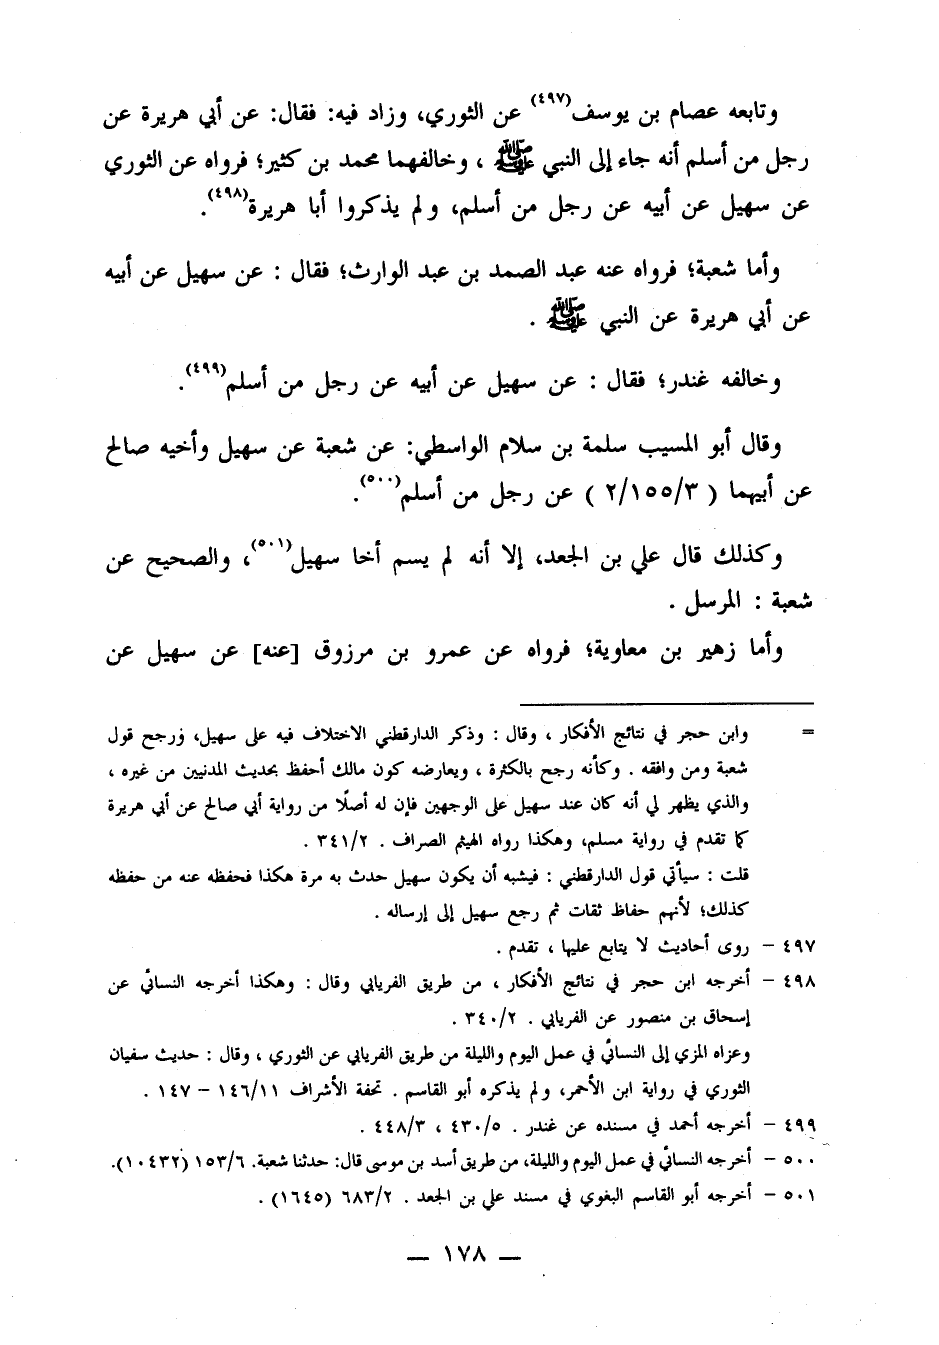 وتابعه عصام بن يوسف(٤٩٧) عن الثوري، وزاد فيه: فقال: عن أبي هريرة عن
رجل من أسلم أنه جاء إلى النبي ﷺ ، وخالفهما محمد بن كثير؛ فرواه عن الثوري
عن سهيل عن أبيه عن رجل من أسلم، ولم يذكروا أبا هريرة(٤٩٨).
وأما شعبة؛ فرواه عنه عبد الصمد بن عبد الوارث؛ فقال : عن سهيل عن أبيه
عن أبي هريرة عن النبي ﷺ .
وخالفه غندر؛ فقال : عن سهيل عن أبيه عن رجل من أسلم(٤٩٩).
وقال أبو المسيب سلمة بن سلام الواسطي: عن شعبة عن سهيل وأخيه صالح
عن أبيهما ( ٢/١٥٥/٣ ) عن رجل من أسلم(٥٠٠).
وكذلك قال علي بن الجعد، إلا أنه لم يسم أخا سهيل(٥٠١)، والصحيح عن
شعبة : المرسل .
وأما زهير بن معاوية؛ فرواه عن عمرو بن مرزوق [عنه] عن سهيل عن
= وابن حجر في نتائج الأفكار ، وقال : وذكر الدارقطني الاختلاف فيه على سهيل، ورجح قول
شعبة ومن وافقه . وكأنه رجح بالكثرة ، ويعارضه كون مالك أحفظ بحديث المدنيين من غيره ،
والذي يظهر لي أنه كان عند سهيل على الوجهين فإن له أصلًا من رواية أبي صالح عن أبي هريرة
كما تقدم في رواية مسلم، وهكذا رواه الهيثم الصراف . ٣٤١/٢ .
قلت : سيأتي قول الدارقطني : فيشبه أن يكون سهيل حدث به مرة هكذا فحفظه عنه من حفظه
كذلك؛ لأنهم حفاظ ثقات ثم رجع سهيل إلى إرساله .
٤٩٧ – روى أحاديث لا يتابع عليها ، تقدم .
٤٩٨ – أخرجه ابن حجر في نتائج الأفكار ، من طريق الفريابي وقال : وهكذا أخرجه النسائي عن
إسحاق بن منصور عن الفريابي . ٣٤٠/٢ .
وعزاه المزي إلى النسائي في عمل اليوم والليلة من طريق الفريابي عن الثوري ، وقال : حديث سفيان
الثوري في رواية ابن الأحمر، ولم يذكره أبو القاسم . تحفة الأشراف ١٤٦/١١ – ١٤٧ .
٤٩٩ – أخرجه أحمد في مسنده عن غندر . ٤٣٠/٥ ، ٤٤٨/٣ .
٥٠٠ – أخرجه النسائي في عمل اليوم والليلة، من طريق أسد بن موسى قال: حدثنا شعبة. ١٥٣/٦ (١٠٤٣٢).
٥٠١ – أخرجه أبو القاسم البغوي في مسند علي بن الجعد . ٦٨٣/٢ (١٦٤٥) .
— ١٧٨ —